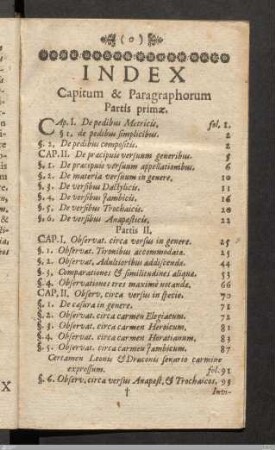 ( o )
INDEX
Capitum & Paragraphorum
Partis primæ.
CAp. I. De pedibus Metricis. fol. 2.
§ 1. de pedibus simplicibus. 2
§. 2, De pedibus compositis. 2
CAP. II. De præcipuis versuum generibus. 5
§. 1. De præcipuis versuum appellationibus. 6
§. 2. De materia versuum in genere. 10
§. 3. De versibus Dactylicis. 11
§. 4. De versibus Jambicis. 16
§. 5. De versibus Trochaicis. 20
§. 6. De versibus Anapæsticis. 22
Partis II,
CAP. I. Observat. circa versus in genere. 25
§. 1. Observat. Tironibus accommodata. 25
§. 2. Observat, Adultioribus addiscendæ. 44
§. 3, Comparationes & similitudines aliquæ. 53
§. 4. Observationes tres maximè notandæ. 66
CAP. II. Observ, circa versus in specie. 70
§. 1. De cæsura in genere. 75
§. 2. Observat. circa carmen Elegiacum. 72
§. 3. Observat. circa carmen Heroicum. 81
§. 4. Observat. circa carmen Horatianum. 83
§. 5. Observat. circa carmen Jambicum. 87
Certamen Leonis & Draconis senario carmine
expressum. fol. 91
§. 6. Observ. circa versus Anapæst, & Trochaicos. 93
†
Inui-